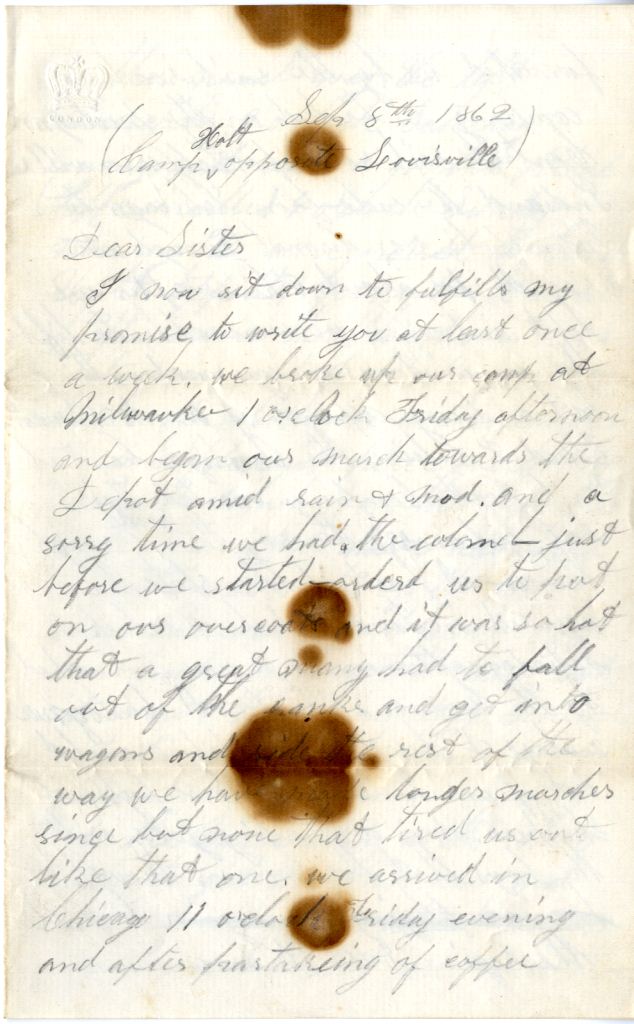 LONDON
Sep 8th 1862
(Camp Holt, opposite Lovisville)
Dear Sister
I now sit down to fulfills my
promise to write you at least once
a week. we broke up our camp at
Milwaukee 1 oclock Friday afternoon
and began our march towards the
Depot amid rain & mud. and a
sorry time we had. the colonel just
before we started orderd us to put
on our overcoats and it was so hot
that a great many had to fall
out of the ranks and get into
wagons and ride the rest of the
way we have made longer marches
since but none that tired us out
like that one. we arrived in
Chicago 11 oclock Friday evening
and after partakeing of coffee